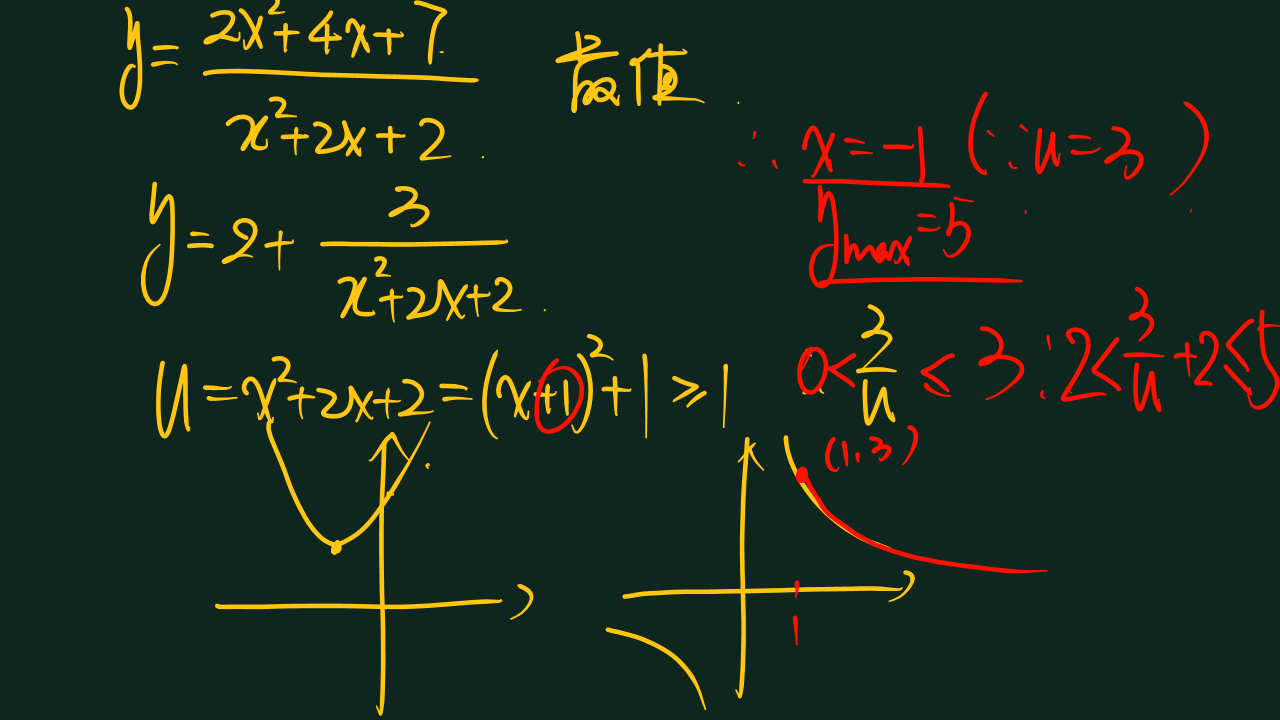 y = (2x²+4x+7)/(x²+2x+2) 最值.
y = 2 + 3/(x²+2x+2).
u = x²+2x+2 = (x+1)²+1 ≥ 1
∴ x = -1 (∵ u = 3)
y max = 5
0 < 3/u ≤ 3. 2 < 3/u + 2 ≤ 5
(1, 3)
1